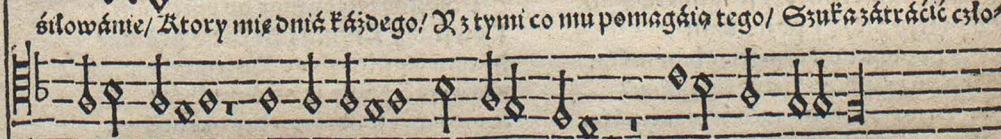 śiłowánie/ Ktory mię dniá káżdego/ Y z tymi co mu pomagáią tego/ Szuka zátráćić czło